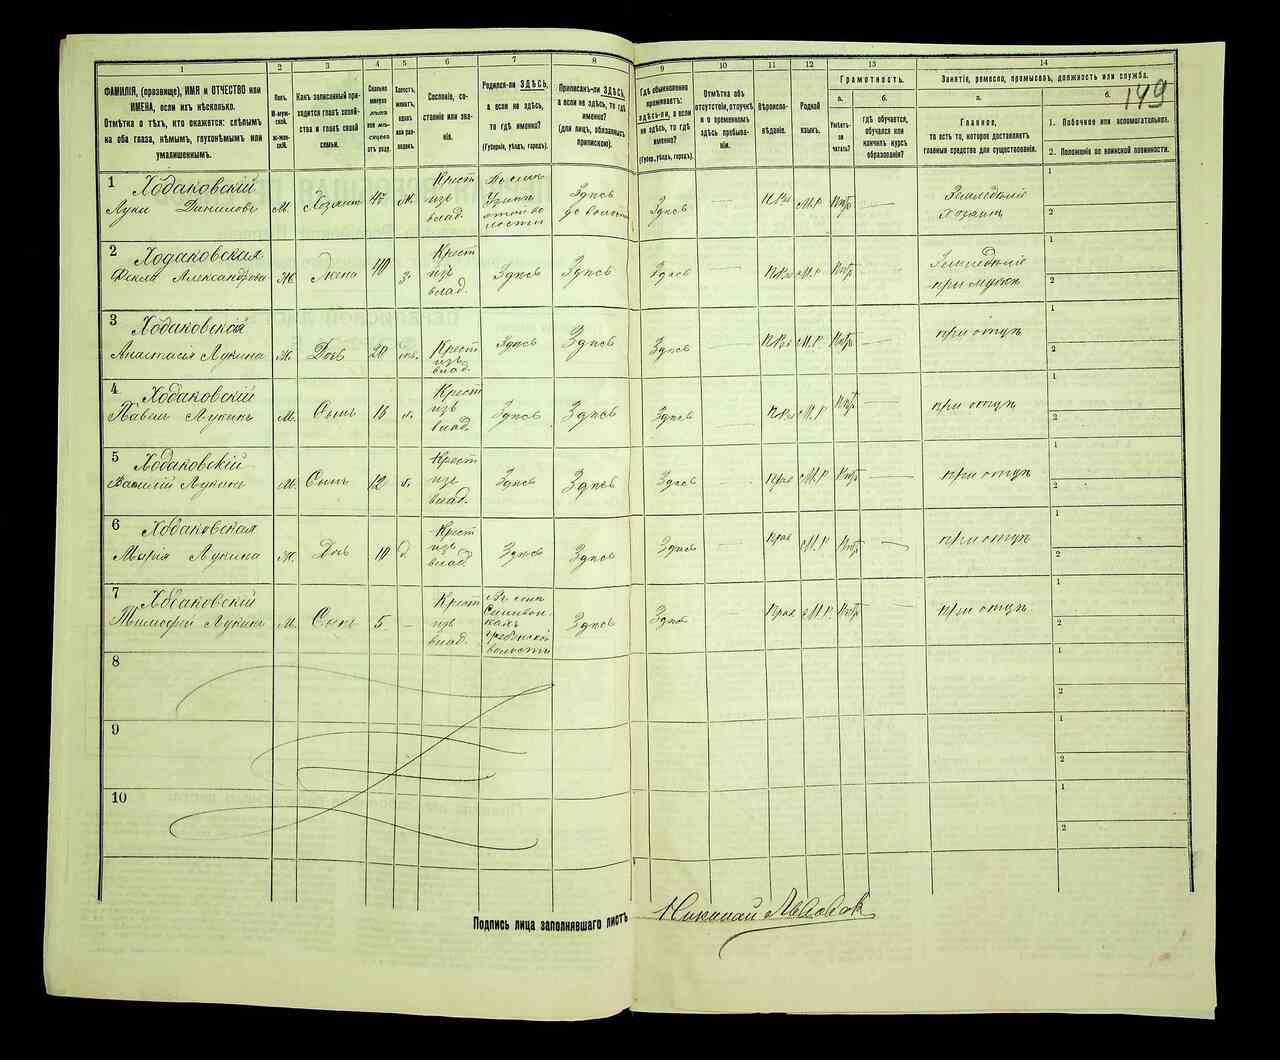 1 2 3 4 5 6 7 8 9 10 11 12 13 14
ФАМИЛІЯ, (прозвище), ИМЯ и ОТЧЕСТВО или
ИМЕНА, если ихъ нѣсколько.
Отмѣтка о тѣхъ, кто окажется: слѣпымъ
на оба глаза, нѣмымъ, глухонѣмымъ или
умалишеннымъ.
Полъ.
М-муж-
ской.
Ж-жен-
скій.
Какъ записанный при-
ходится главѣ хозяй-
ства и главѣ своей
семьи.
Сколько
минуло
лѣтъ
или мѣ-
сяцевъ
отъ роду.
Холостъ,
женатъ,
вдовъ
или раз-
веденъ.
Сословіе, со-
стояніе или зва-
ніе.
Родился-ли ЗДѢСЬ,
а если не здѣсь,
то гдѣ именно?
(Губернія, уѣздъ, городъ).
Приписанъ-ли ЗДѢСЬ,
а если не здѣсь, то гдѣ
именно?
(для лицъ, обязанныхъ
припискою).
Гдѣ обыкновенно
проживаетъ:
здѣсь-ли, а если
не здѣсь, то гдѣ
именно?
(Губер., уѣздъ, городъ).
Отмѣтка объ
отсутствіи, отлучкѣ
и о временномъ
здѣсь пребыва-
ніи.
Вѣроиспо-
вѣданіе.
Родной
языкъ.
Грамотность.
а.
Умѣетъ-
ли
читать?
б.
гдѣ обучается,
обучался или
кончилъ курсъ
образованія?
Занятіе, ремесло, промыселъ, должность или служба.
а.
Главное,
то есть то, которое доставляетъ
главныя средства для существованія.
б.
149
1. Побочное или вспомогательное.
2. Положеніе по воинской повинности.
1 Ходаковскій
Лука Даниловъ М. Хозяинъ 45 Ж. Крест
изъ
влад. Здѣсь Здѣсь М.Р. Нѣтъ — Земледѣлій
хозяинъ 1 2
2 Ходаковская
Фекла Александрова Ж. Жена 40 З. Крест
изъ
влад. Здѣсь Здѣсь Здѣсь — М.Р. Нѣтъ — Земледѣлій
при мужѣ 1 2
3 Ходаковская
Анастасія Лукина Ж. Дочь 20 Крест
изъ
влад. Здѣсь Здѣсь Здѣсь — М.Р. Нѣтъ — при отцѣ 1 2
4 Ходаковскій
Павелъ Лукинъ М. Сынъ Крест
изъ
влад. Здѣсь Здѣсь Здѣсь — М.Р. Нѣтъ — при отцѣ 1 2
5 Ходаковскій
Василій Лукинъ М. Сынъ 12 Крест
изъ
влад. Здѣсь Здѣсь Здѣсь — М.Р. Нѣтъ — при отцѣ 1 2
6 Ходаковская
Марія Лукина Ж. Дочь 10 Крест
изъ
влад. Здѣсь Здѣсь Здѣсь — М.Р. Нѣтъ — при отцѣ 1 2
7 Ходаковскій
Тимофей Лукинъ М. Сынъ 5 — Крест
изъ
влад. волости Здѣсь Здѣсь — М.Р. Нѣтъ — при отцѣ 1 2
8 1 2
9 1 2
10 1 2
Подпись лица заполнявшаго листъ Николай